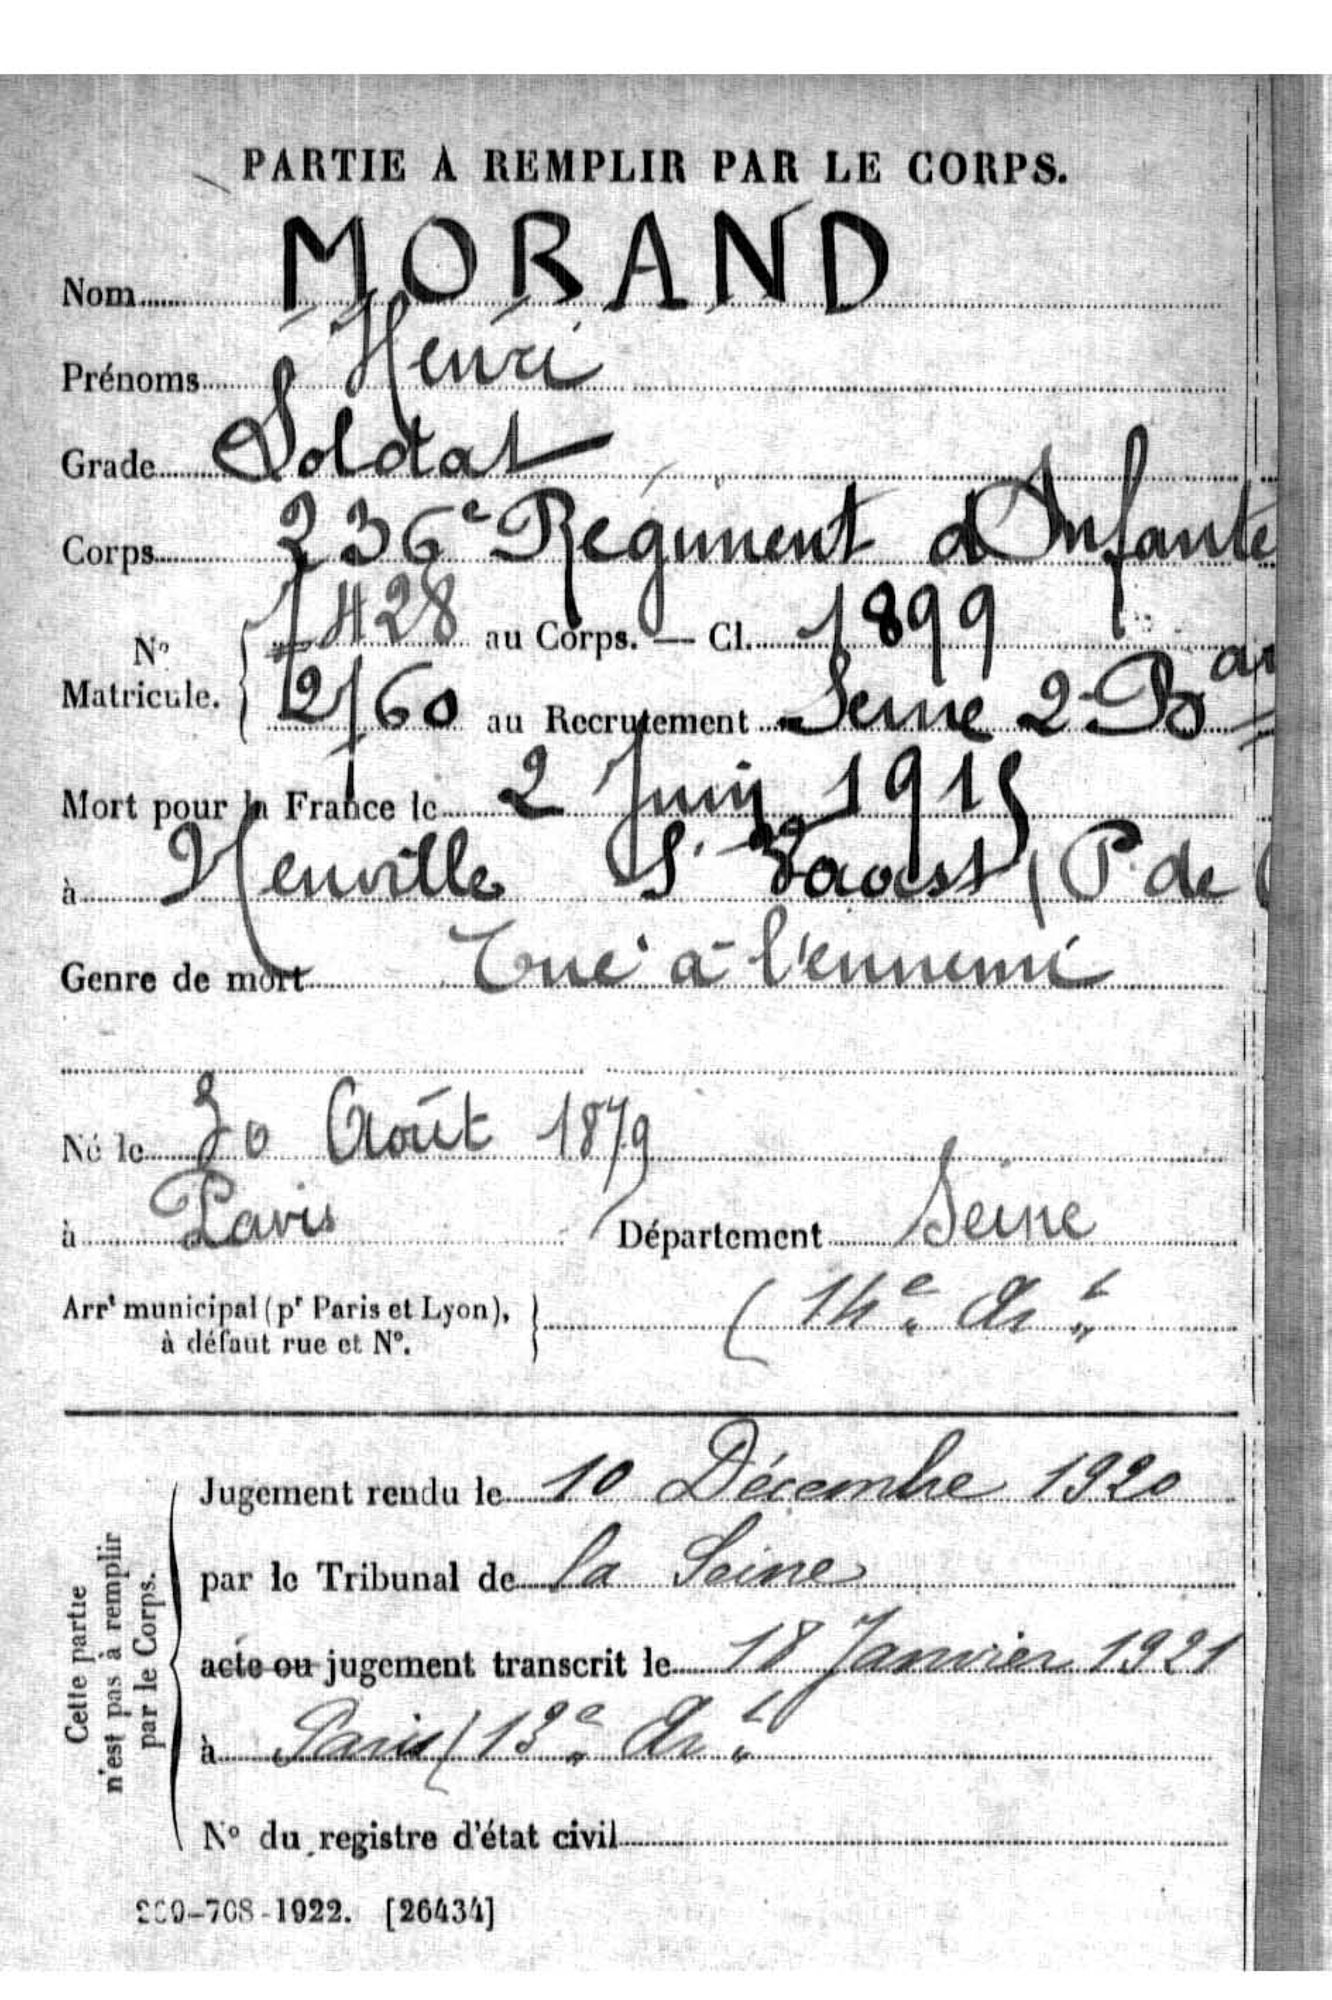 PARTIE À REMPLIR PAR LE CORPS.
Nom MORAND
Prénoms Henri
Grade Soldat
Corps 236e Régiment d'Infante
No Matricule. { 1428 au Corps. — Cl. 1899
2160 au Recrutement Seine 2e B au
Mort pour la France le 2 Juin 1915
à Neuville St Vaast (P. de
Genre de mort Tué à l'ennemi
Né le 30 Août 1879
à Paris Département Seine
Arrt municipal (pr Paris et Lyon), } (14e Art
à défaut rue et No.
Cette partie n'est pas à remplir par le Corps.
Jugement rendu le 10 Décembre 1920
par le Tribunal de la Seine
acte ou jugement transcrit le 18 Janvier 1921
à Paris (13e Art
No du registre d'état civil
-708-1922. [26434]